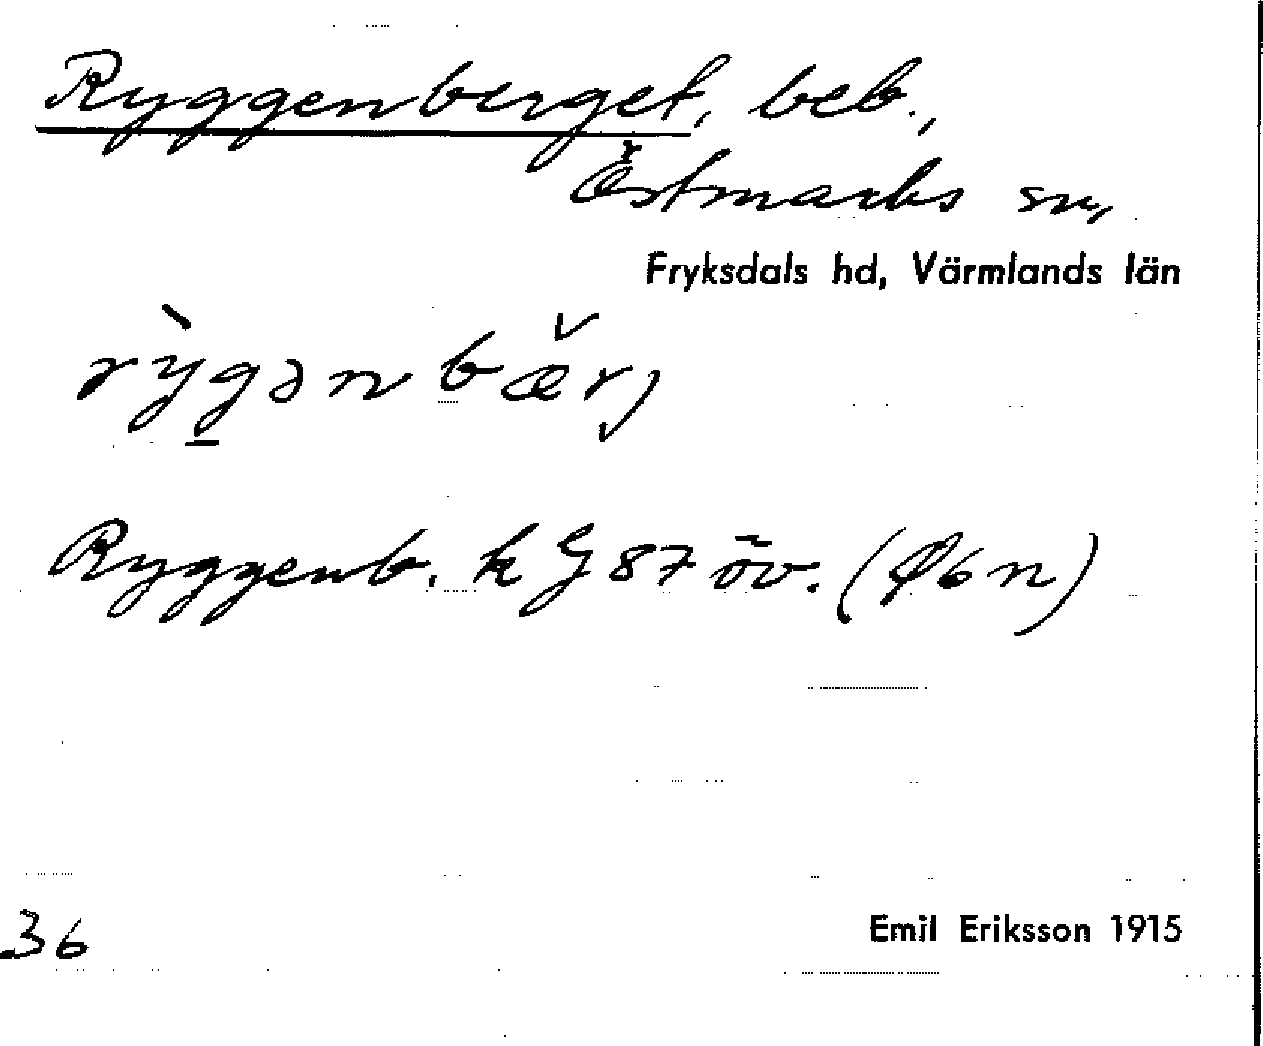 Ryggenberget, beb.,
Östmarks sn,
Fryksdals hd, Värmlands län
rỳgənbæ̌rj
Ryggenb. k G 87 öv. (Ø6n)
36
Emil Eriksson 1915